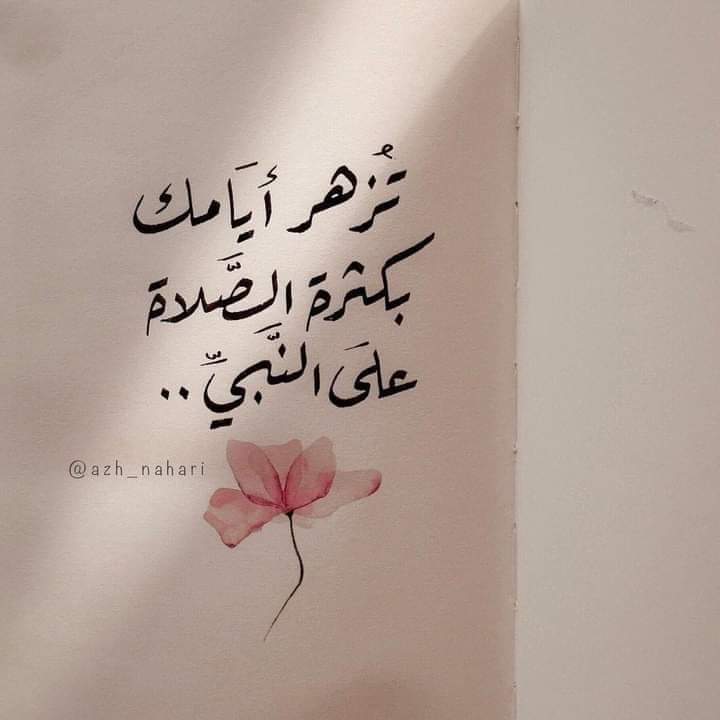 تُزهر أيَامك
بكثرة الصَّلاة
علَى النَّبيِّ ..
@azh_nahari